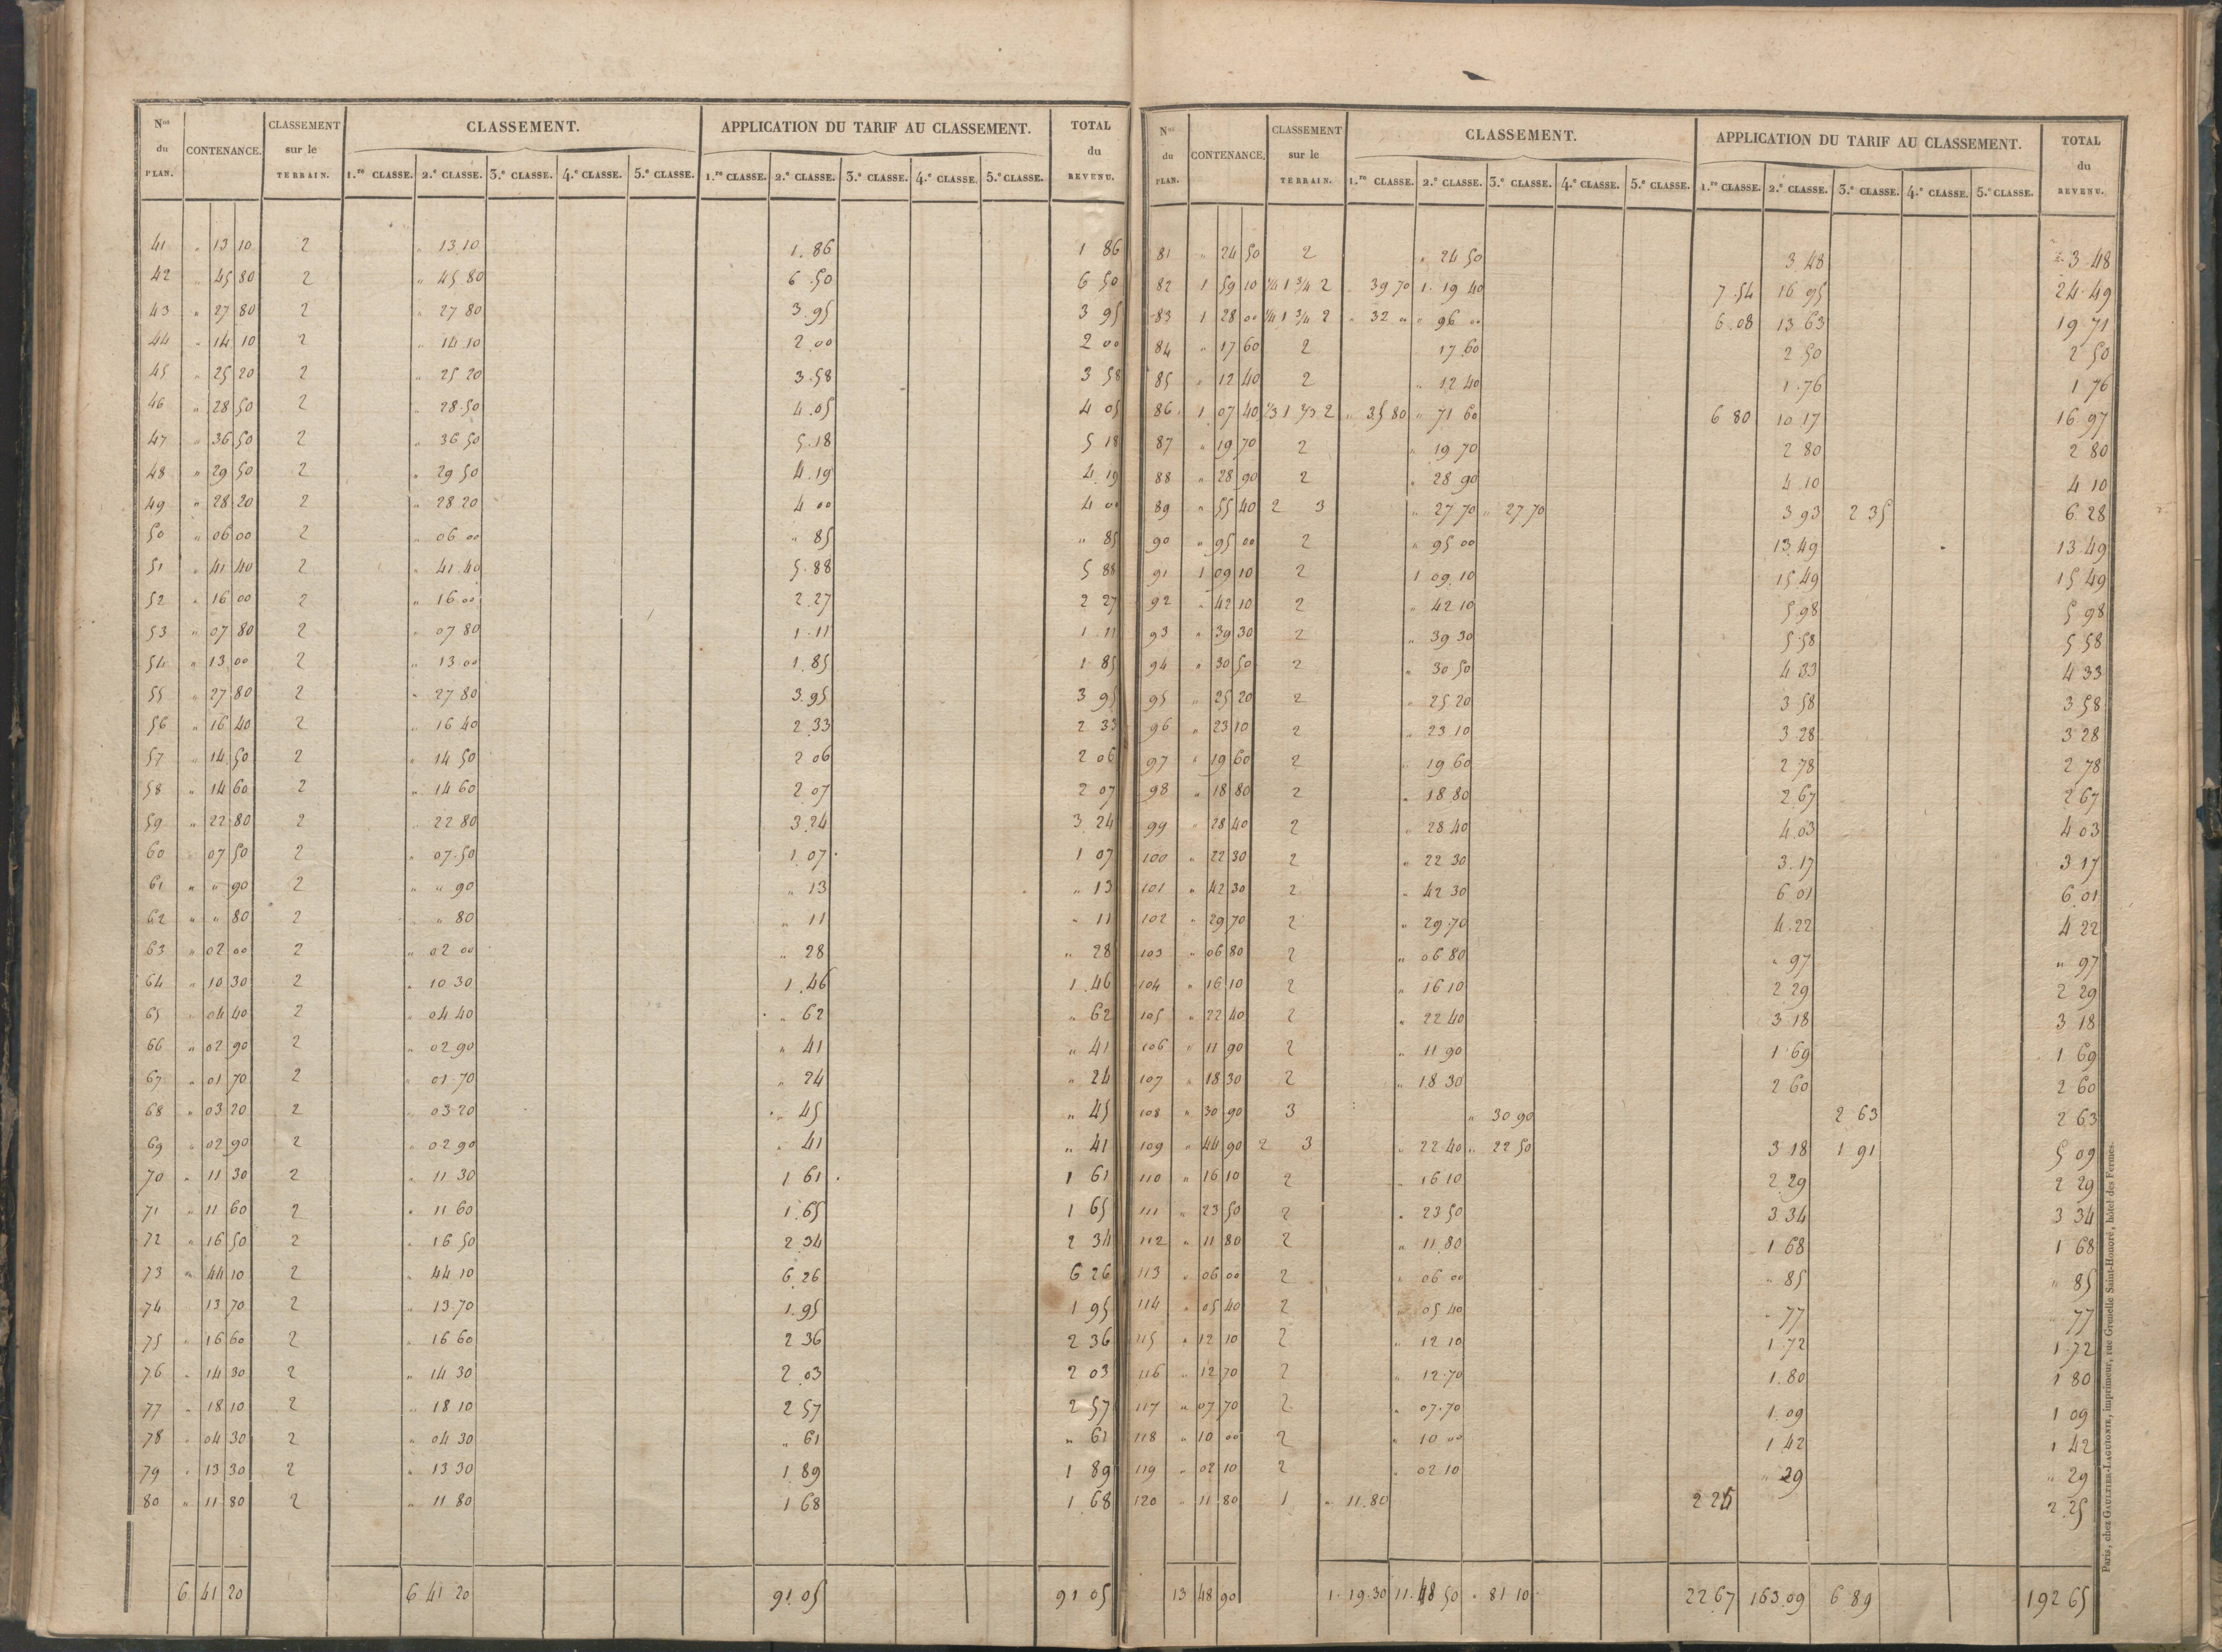 Nos du PLAN. CONTENANCE. CLASSEMENT sur le TERRAIN. CLASSEMENT. APPLICATION DU TARIF AU CLASSEMENT. TOTAL du REVENU.
1.re CLASSE. 2.e CLASSE. 3.e CLASSE. 4.e CLASSE. 5.e CLASSE. 1.re CLASSE. 2.e CLASSE. 3.e CLASSE. 4.e CLASSE. 5.e CLASSE.
41 " 13 10 2 " 13 10 1.86 1 86
42 " 45 80 2 " 45 80 6.50 6 50
43 " 27 80 2 " 27 80 3.95 3 95
44 " 14 10 2 " 14 10 2.00 2 00
45 " 25 20 2 " 25 20 3.58 3 58
46 " 28 50 2 " 28.50 4.05 4 05
47 " 36 50 2 " 36 50 5.18 5 18
48 " 29 50 2 " 29 50 4.19 4 19
49 " 28 20 2 " 28 20 4 00 4 00
50 " 06 00 2 " 06 00 " 85 " 85
51 " 41 40 2 " 41.40 5.88 5 88
52 " 16 00 2 " 16 00 2.27 2 27
53 " 07 80 2 " 07 80 1.11 1 11
54 " 13 00 2 " 13 00 1.85 1 85
55 " 27 80 2 " 27 80 3.95 3 95
56 " 16 40 2 " 16 40 2.33 2 33
57 " 14 50 2 " 14 50 2 06 2 06
58 " 14 60 2 " 14 60 2 07 2 07
59 " 22 80 2 " 22 80 3.24 3 24
60 " 07 50 2 " 07.50 1.07 1 07
61 " " 90 2 " " 90 " 13 " 13
62 " " 80 2 " 80 " 11 " 11
63 " 02 00 2 " 02 00 " 28 " 28
64 " 10 30 2 " 10 30 1.46 1.46
65 " 04 40 2 " 04 40 " 62 " 62
66 " 02 90 2 " 02 90 " 41 " 41
67 " 01 70 2 " 01.70 " 24 " 24
68 " 03 20 2 " 03 20 " 45 " 45
69 " 02 90 2 " 02 90 " 41 " 41
70 " 11 30 2 " 11 30 1 61 1 61
71 " 11 60 2 " 11 60 1.65 1 65
72 " 16 50 2 " 16 50 2.34 2 34
73 " 44 10 2 " 44 10 6.26 6 26
74 " 13 70 2 " 13.70 1.95 1 95
75 " 16 60 2 " 16 60 2 36 2 36
76 " 14 30 2 " 14 30 2.03 2 03
77 " 18 10 2 " 18 10 2 57 2 57
78 " 04 30 2 " 04 30 " 61 " 61
79 " 13 30 2 " 13 30 1.89 1 89
80 " 11 80 2 " 11 80 1 68 1 68
6 41 20 6 41 20 91.05 91 05
Nos du PLAN. CONTENANCE. CLASSEMENT sur le TERRAIN. CLASSEMENT. APPLICATION DU TARIF AU CLASSEMENT. TOTAL du REVENU.
1.re CLASSE. 2.e CLASSE. 3.e CLASSE. 4.e CLASSE. 5.e CLASSE. 1.re CLASSE. 2.e CLASSE. 3.e CLASSE. 4.e CLASSE. 5.e CLASSE.
81 " 24 50 2 " 24 50 3.48 3 48
82 1 59 10 1/4 1 3/4 2 " 39 70 1. 19 40 7.54 16 95 24.49
83 1 28 00 1/4 1 3/4 2 " 32 00 " 96 00 6.08 13 63 19 71
84 " 17 60 2 17.60 2 50 2 50
85 " 12 40 2 " 12 40 1.76 1 76
86 1 07 40 1/3 1 2/3 2 " 35 80 " 71 60 6 80 10 17 16 97
87 " 19 70 2 " 19 70 2 80 2 80
88 " 28 90 2 " 28 90 4.10 4 10
89 " 55 40 2 3 " 27 70 " 27 70 3 93 2 35 6.28
90 " 95 00 2 " 95 00 13.49 13 49
91 1 09 10 2 1 09.10 15 49 15 49
92 " 42 10 2 " 42 10 5.98 5 98
93 " 39 30 2 " 39 30 5.58 5 58
94 " 30 50 2 " 30 50 4 33 4 33
95 " 25 20 2 " 25 20 3.58 3 58
96 " 23 10 2 " 23 10 3 28 3 28
97 " 19 60 2 " 19 60 2 78 2 78
98 " 18 80 2 " 18 80 2.67 2 67
99 " 28 40 2 " 28 40 4.03 4 03
100 " 22 30 2 " 22 30 3.17 3 17
101 " 42 30 2 " 42 30 6 01 6.01
102 " 29 70 2 " 29.70 4.22 4 22
103 " 06 80 2 " 06 80 " 97 " 97
104 " 16 10 2 " 16 10 2 29 2 29
105 " 22 40 2 " 22 40 3.18 3 18
106 " 11 90 2 " 11 90 1.69 1 69
107 " 18 30 2 " 18 30 2 60 2 60
108 " 30 90 3 " 30 90 2 63 2 63
109 " 44 90 2 3 " 22 40 " 22 50 3 18 1 91 5 09
110 " 16 10 2 " 16 10 2 29 2 29
111 " 23 50 2 " 23 50 3.34 3 34
112 " 11 80 2 " 11.80 1 68 1 68
113 " 06 00 2 " 06 00 " 85 " 85
114 " 05 40 2 " 05 40 " 77 " 77
115 " 12 10 2 " 12 10 1.72 1.72
116 " 12 70 2 " 12.70 1.80 1 80
117 " 07 70 2 " 07.70 1.09 1 09
118 " 10 00 2 " 10 00 1 42 1 42
119 " 02 10 2 " 02 10 " 29 " 29
120 " 11 80 1 " 11.80 2 25 2.25
13 48 90 1. 19.30 11.48 50 " 81 10 22 67 163.09 6 89 192 65
Paris, chez GAULTIER-LAGUIONIE, imprimeur, rue Grenelle Saint-Honoré, hôtel des Fermes.